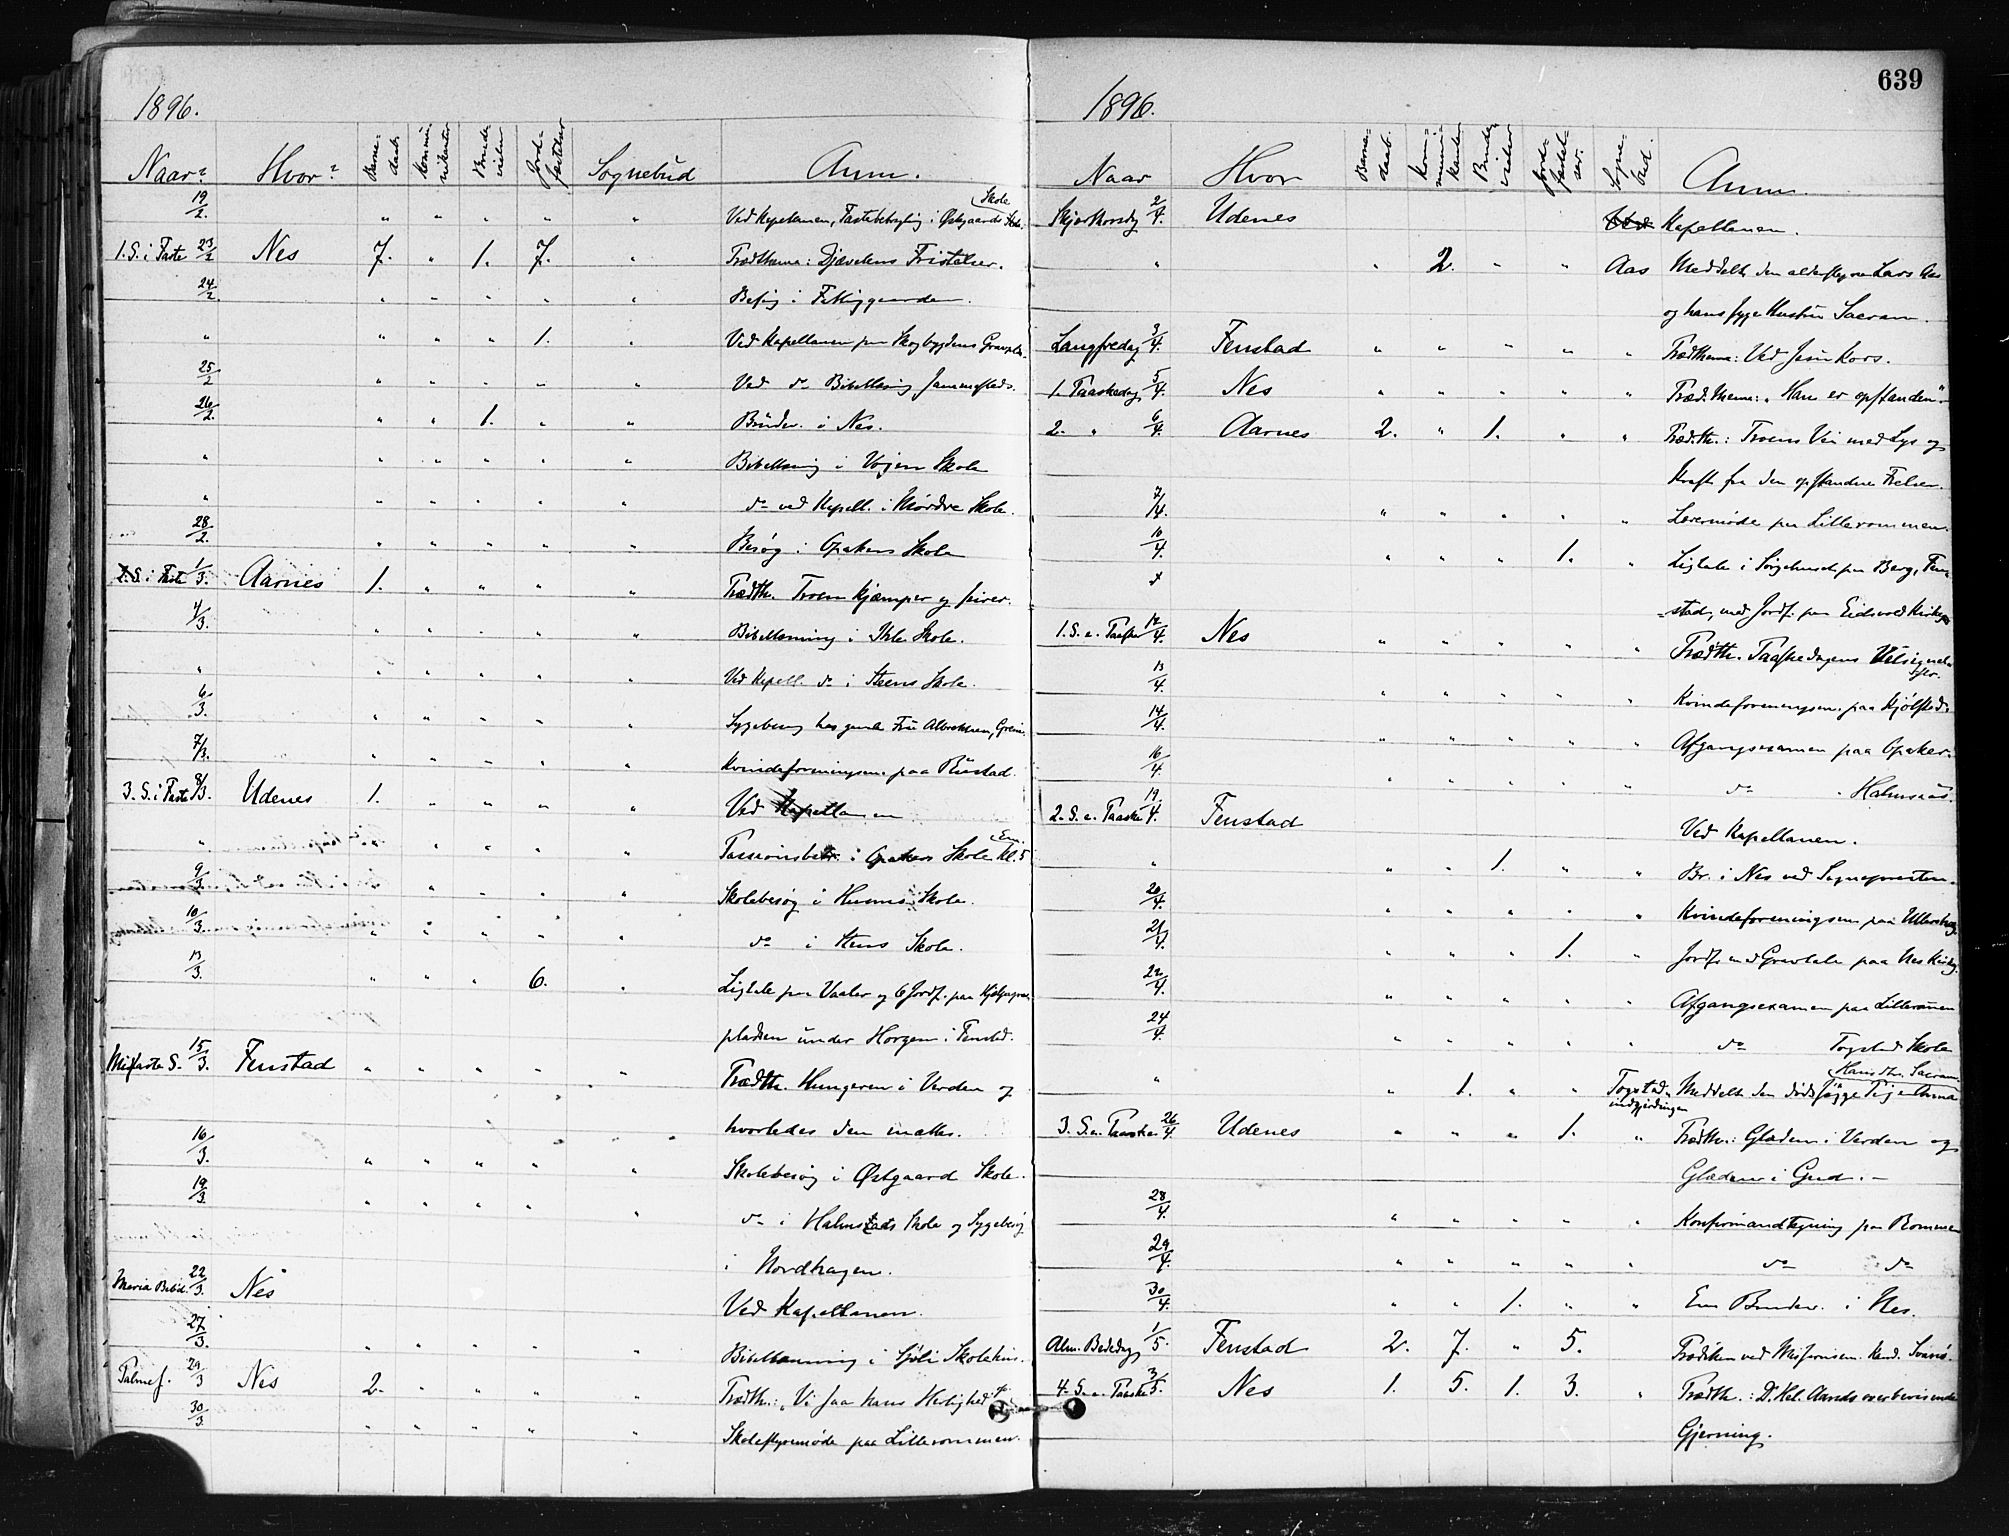 1896.
Naar? Hvor? Barne-daab. Kommunikanter Brudevielser Jordfæstelser Sognebud Anm.
19/2. " " " " " Ved Kapellanen, i Østgaards Skole
1. S. i Faste 23/2 Nes 7. " 1. 7. " Prædthema: Djævelens Fristelser.
24/2 " " " " " Besøg i Fattiggaarden.
" " " " 1. " Ved Kapellanen paa Skogbygdens Gravpl.
25/2 " " " " " Ved do Bibellæsning sammesteds.
26/2. " " 1. " " Brudev. i Nes.
" " " " " " Bibellæsning i Vojen Skole
" " " " " " do ved Kapell. i Mørdre Skole.
28/2. " " " " " Besøg i Opakers Skole
2. S. i Faste 1/3. Aarnes 1. " " " " Prædth. Troen kjæmper og seirer.
4/3. " " " " " Bibellæsning i Ihle Skole.
" " " " " " Ved Kapell. do i Steens Skole.
6/3. " " " " " Sygebesøg hos gamle Fru
7/3. " " " " " Kvindeforeningsm. paa Rustad.
3. S. i Faste 8/3. Udenes 1. " " " " Ved Kapellanen
" " " " " Passionsbetr. i Opakers Skole Em. Kl. 5
9/3. " " " Skolebesøg i Hums Skole.
10/3. " " " " " do i Stens Skole.
13/3. " " " 6. " Ligtale paa Vaaler og 6 Jordf. paa
pladsen under Horgen i Fenstad.
Midfaste S. 15/3. Fenstad " " " " " Prædth. Hungeren i Verden og
hvorledes den mættes.
16/3. " " " " " Skolebesøg i Østgaard Skole.
19/3. " " " " " do i Halmstads Skole og Sygebesøg
i Nordhagen.
Maria Bebud. 22/3. Nes Ved Kapellanen.
27/3 " " " " " Bibellæsning i Sjøli Skolehus.
Palmes. 29/3 Nes 2. " " " " Prædth.: "Vi saa hans Herlighed"
30/3. " " " " " Skolestyremøde paa Lillerommen.
639
1896.
Naar Hvor Barne-daab. Kommunikanter Brudevielser Jordfæstelser. Sognebud. Anm.
Skjærthorsdag 2/4. Udenes Kapellanen.
" " 2. " " Aas Meddelt den alderstegne Lars Aas
og hans syge Hustru Sacram.
Langfredag 3/4. Fenstad " " " " " Prædthema: Ved Jesu Kors.
1. Paaskedag 5/4. Nes " " " " " Præd. thema: "Han er opstanden".
2. " 6/4. Aarnes 2. " 1. " " Præd. th.: Troens Vei med Lys og
Kraft fra den opstandne Frelser.
7/4. " " " " " Lærermøde paa Lillerommen.
10/4. " " " 1. " Ligtale i Sørgehuset paa Berg, Fen-
stad, med Jordf. paa Eidsvold Kirkeg.
1. S. e. Paaske 12/4. Nes " " " " " Prædth. Paaskedagens Velsignelser.
13/4. " " " " " Kvindeforeningsm. paa Kjølstad.
14/4. " " " " " Afgangsexamen paa Opaker.
16/4. " " " " " do " Halmsaas.
2. S. e. Paaske 19/4. Fenstad Ved Kapellanen.
" " " 1. " " Br. i Nes ved Sognepresten.
20/4. " " " " " Kvindeforeningsm. paa
21/4. " " " 1. " Jordf. med Gravtale paa Nes Kirkeg.
22/4. " " " " " Afgangsexamen paa Lillerommen
24/4. " " " " " do Togstad Skole
" " 1. " " Togstad- Meddelt den dødssyge Pige
3. S. e. Paaske 26/4. Udenes " " " 1. " Prædth.: Glæden i Verden og
Glæden i Gud. -
28/4. " " " " " Konfirmandtegning paa Rommen
29/4. " " " " " do do
30/4. " " 1. " " En Brudev. i Nes.
Alm. Bededag 1/5. Fenstad 2. 7. " 5. Prædiken ved Missionsem. Kand.
4. S. e. Paaske 3/5. Nes 1. 5. 1. 3. " Prædth.: D. Hel. Aands overbevisende
Gjerning.